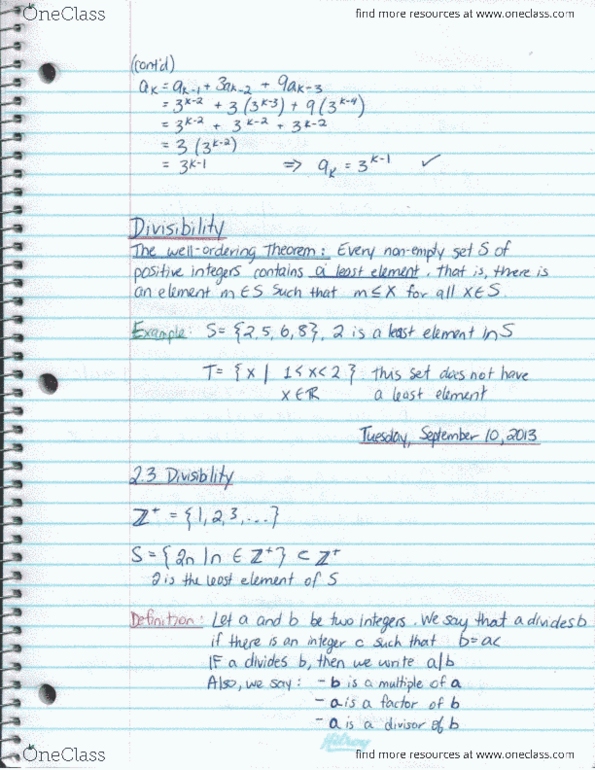 OneClass
find more resources at www.oneclass.com
(cont'd)
aₖ = aₖ₋₁ + 3aₖ₋₂ + 9aₖ₋₃
= 3ᵏ⁻² + 3(3ᵏ⁻³) + 9(3ᵏ⁻⁴)
= 3ᵏ⁻² + 3ᵏ⁻² + 3ᵏ⁻²
= 3(3ᵏ⁻²)
= 3ᵏ⁻¹ ⇒ aₖ = 3ᵏ⁻¹ ✓
Divisibility
The well-ordering Theorem: Every non-empty set S of
positive integers contains a least element, that is, there is
an element m ∈ S such that m ≤ x for all x ∈ S.
Example: S = {2, 5, 6, 8}, 2 is a least element in S
T = {x | 1 < x < 2} this set does not have
x ∈ ℝ a least element
Tuesday, September 10, 2013
2.3 Divisibility
ℤ⁺ = {1, 2, 3, ...}
S = {2n | n ∈ ℤ⁺} ⊂ ℤ⁺
2 is the least element of S
Definition: Let a and b be two integers. We say that a divides b
if there is an integer c such that b = ac
If a divides b, then we write a/b
Also, we say: - b is a multiple of a
- a is a factor of b
- a is a divisor of b
Hilroy
OneClass
find more resources at www.oneclass.com